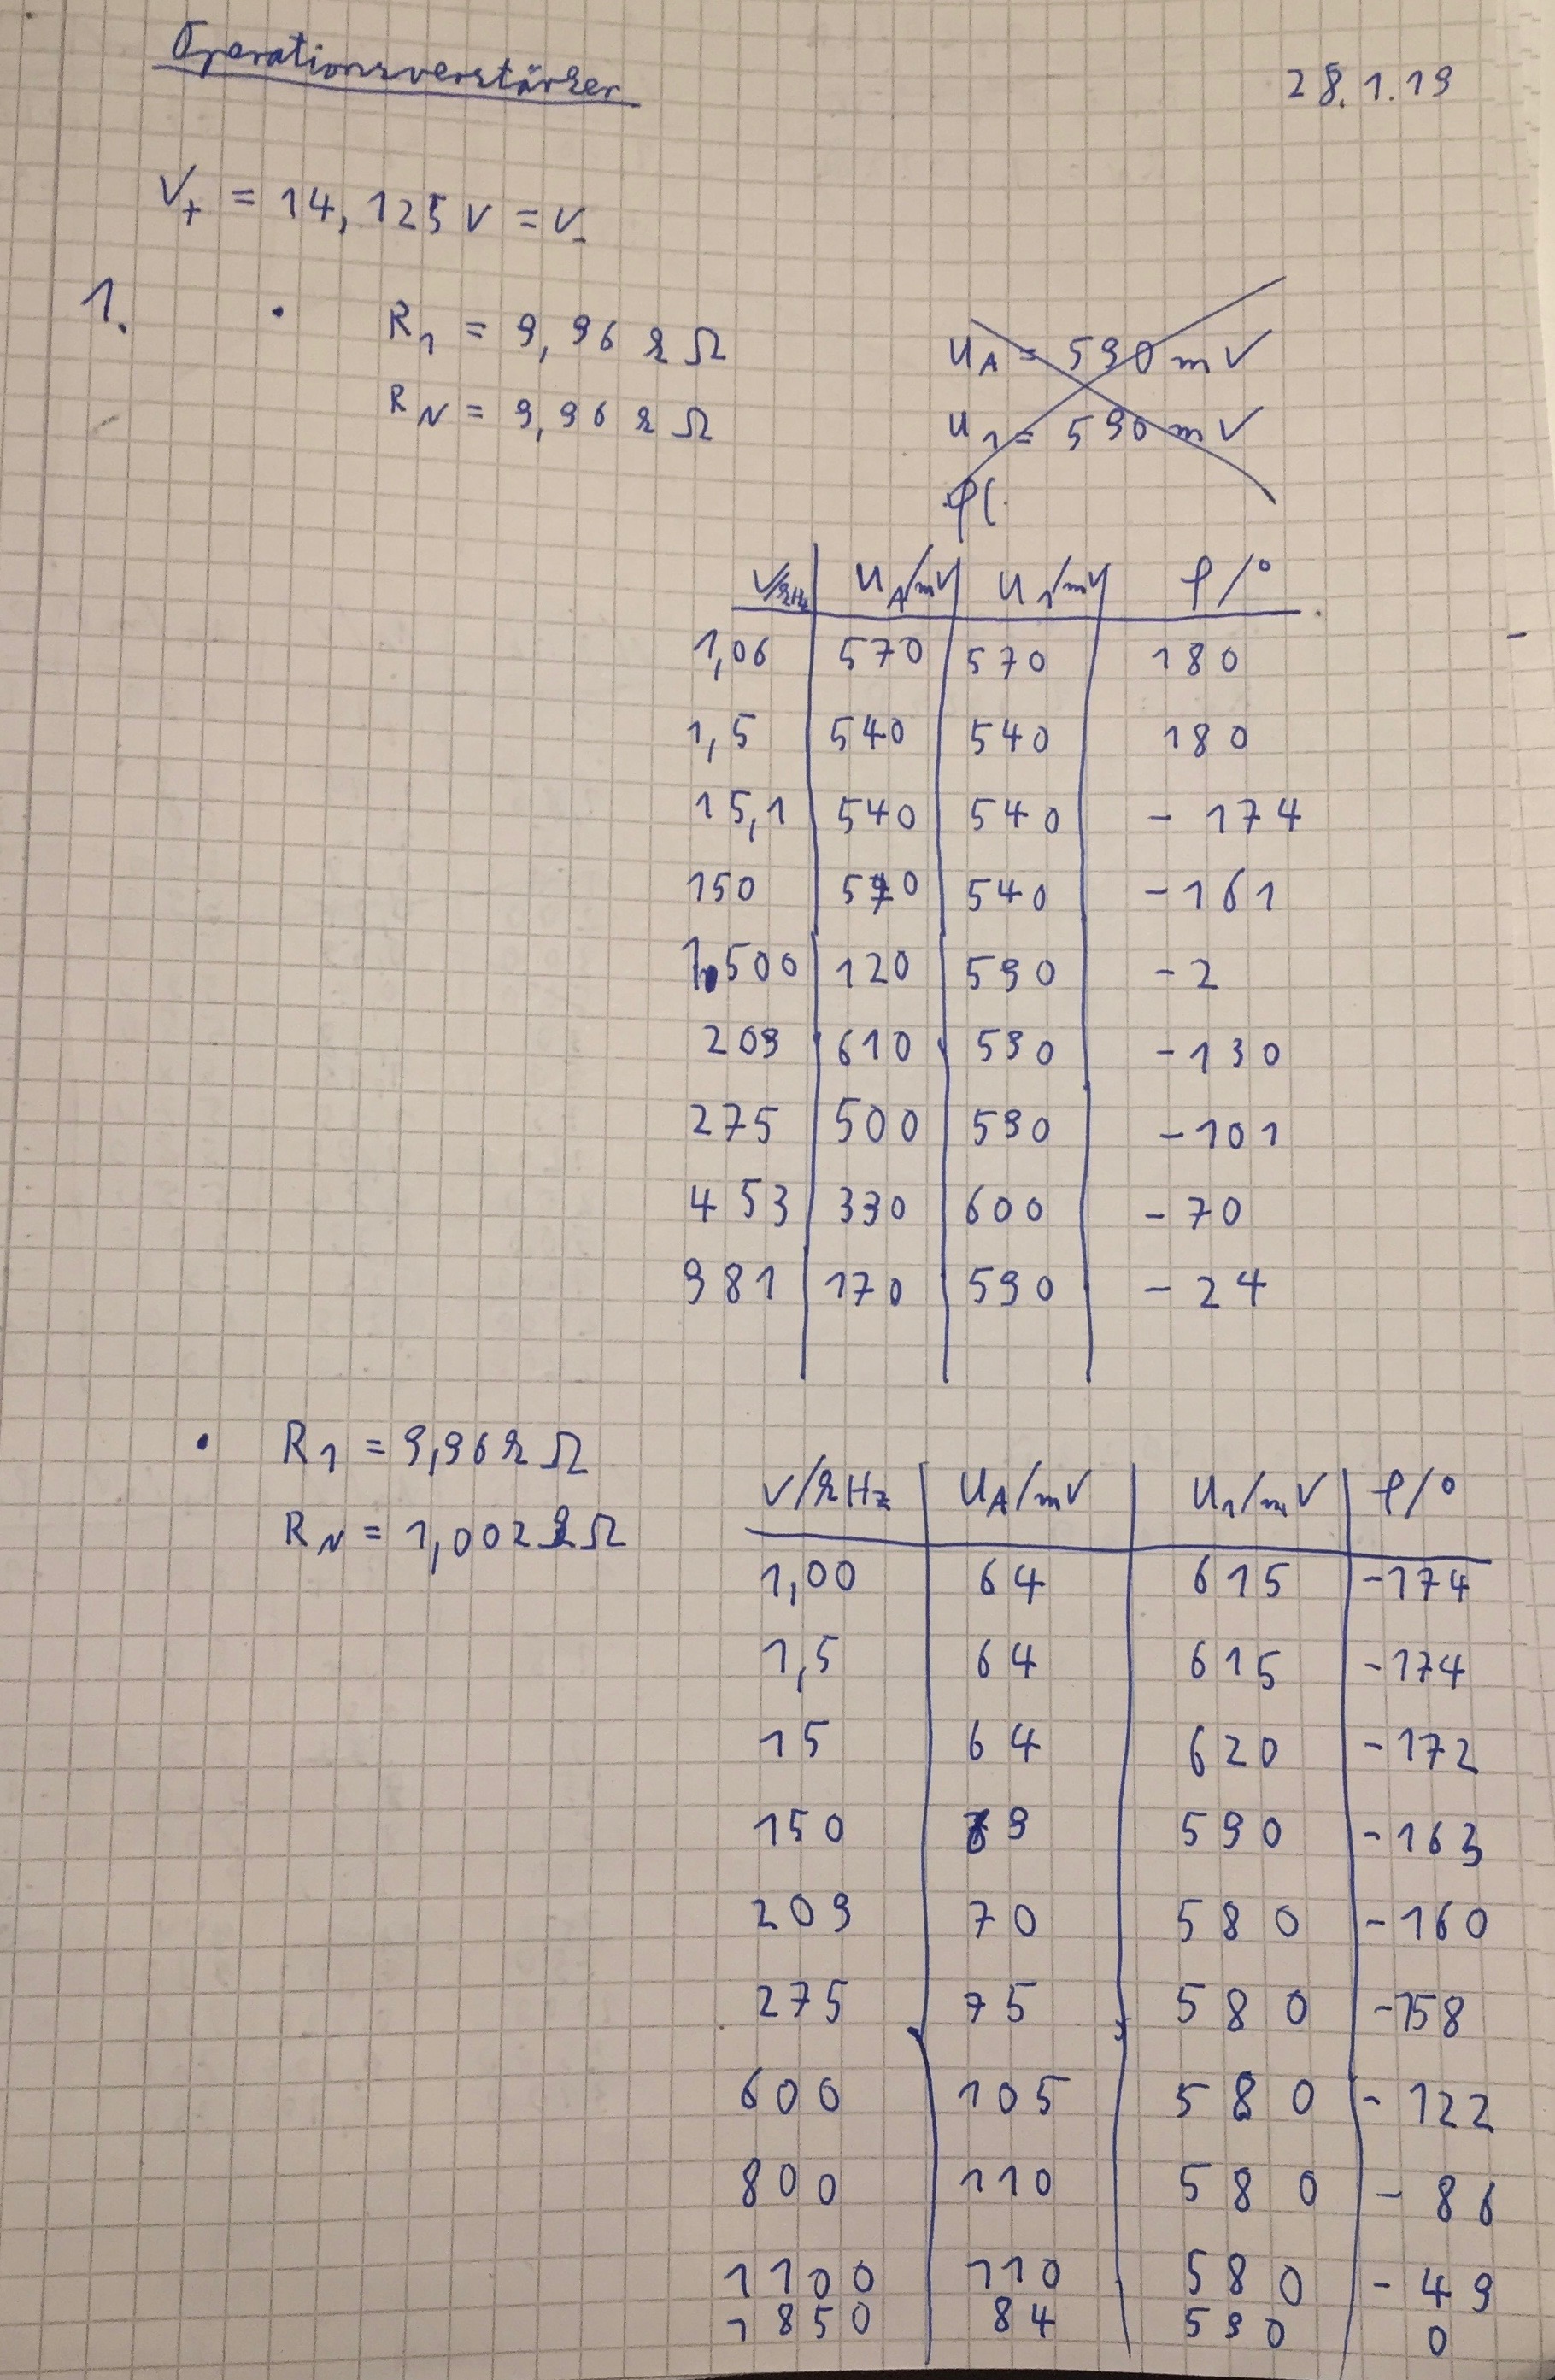 Operationsverstärker
28.1.19
V+ = 14,125 V = V-
1.
• R1 = 9,96 kΩ
UA = 590 mV
RN = 9,96 kΩ
U1 = 590 mV
φ(
ν/kHz UA/mV U1/mV φ/°
1,06 570 570 180
1,5 540 540 180
15,1 540 540 - 174
150 570 540 - 161
1500 120 590 - 2
209 610 590 - 130
275 500 590 - 101
453 330 600 - 70
981 170 590 - 24
• R1 = 9,96 kΩ
RN = 1,002 kΩ
ν/kHz UA/mV U1/mV φ/°
1,00 64 615 -174
1,5 64 615 -174
15 64 620 -172
150 590 -163
209 70 580 -160
275 75 580 -158
600 105 580 - 122
800 110 580 - 86
1100 110 580 - 49
1850 84 590 0